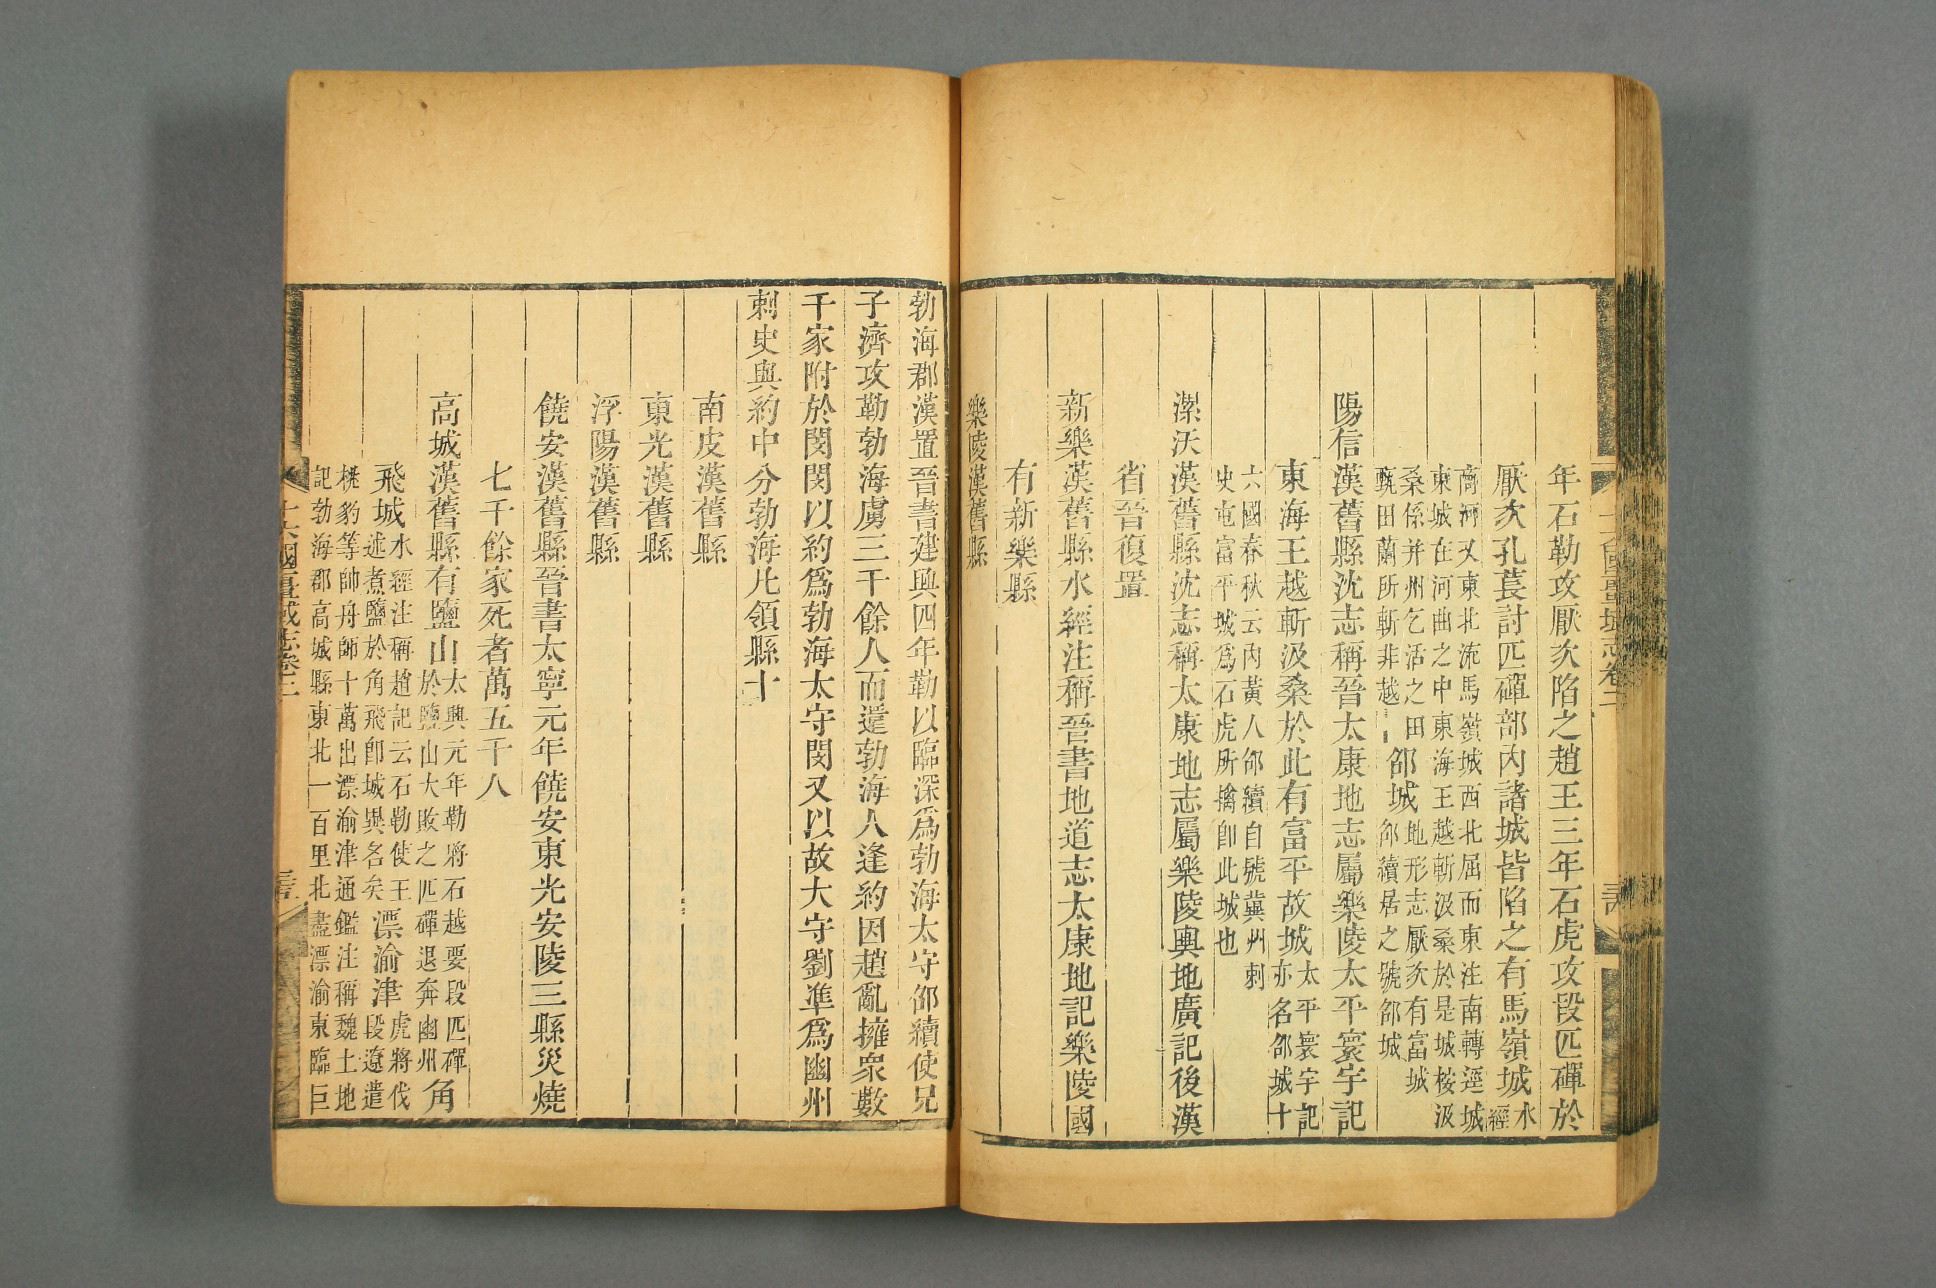 年石勒攻厭次陷之趙王三年石虎攻段匹磾於
厭次孔萇討匹磾部內諸城皆陷之有馬嶺城水經
商河又東北流馬嶺城西北屈而東注南轉逕城
東城在河曲之中東海王越斬汲桑於是城桉汲
桑係并州乞活之田
甄田蘭所斬非越
邵城地形志厭次有富城
邵續居之號邵城
陽信漢舊縣沈志稱晉太康地志屬樂陵太平寰宇記
東海王越斬汲桑於此有富平故城太平寰宇記
亦名邵城十
六國春秋云內黃人邵續自號冀州刺
史屯富平城爲石虎所擒卽此城也
漯沃漢舊縣沈志稱太康地志屬樂陵輿地廣記後漢
省晉復置
新樂漢舊縣水經注稱晉書地道志太康地記樂陵國
有新樂縣
樂陵漢舊縣
勃海郡漢置晉書建興四年勒以臨深爲勃海太守邵續使兄
子濟攻勒勃海虜三千餘人而還勃海人逢約因趙亂擁眾數
千家附於閔閔以約爲勃海太守閔又以故大守劉準爲幽州
刺史與約中分勃海凡領縣十
南皮漢舊縣
東光漢舊縣
浮陽漢舊縣
饒安漢舊縣晉書太寧元年饒安東光安陵三縣災燒
七千餘家死者萬五千人
高城漢舊縣有鹽山太興元年勒將石越要段匹磾
於鹽山大敗之匹磾退奔幽州
角
飛城水經注稱趙記云石勒使王
述煮鹽於角飛卽城異名矣
漂渝津段遼遣
虎將伐
桃豹等帥舟師十萬出漂渝津通鑑注稱魏土地
記勃海郡高城縣東北一百里北盡漂渝東臨巨
十六國疆域志卷二